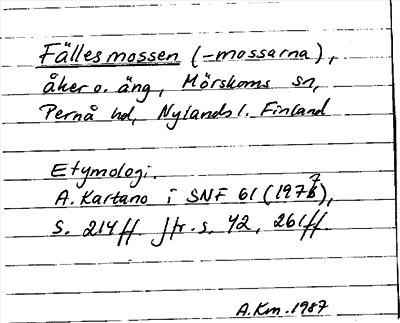 Fällesmossen (-mossarna),
åker o. äng, Mörskoms sn,
Pernå hd, Nylands l. Finland
Etymologi.
A. Kartano i SNF 61 (1977),
s. 214ff. Jfr. s. 42, 261ff.
A.Km. 1987